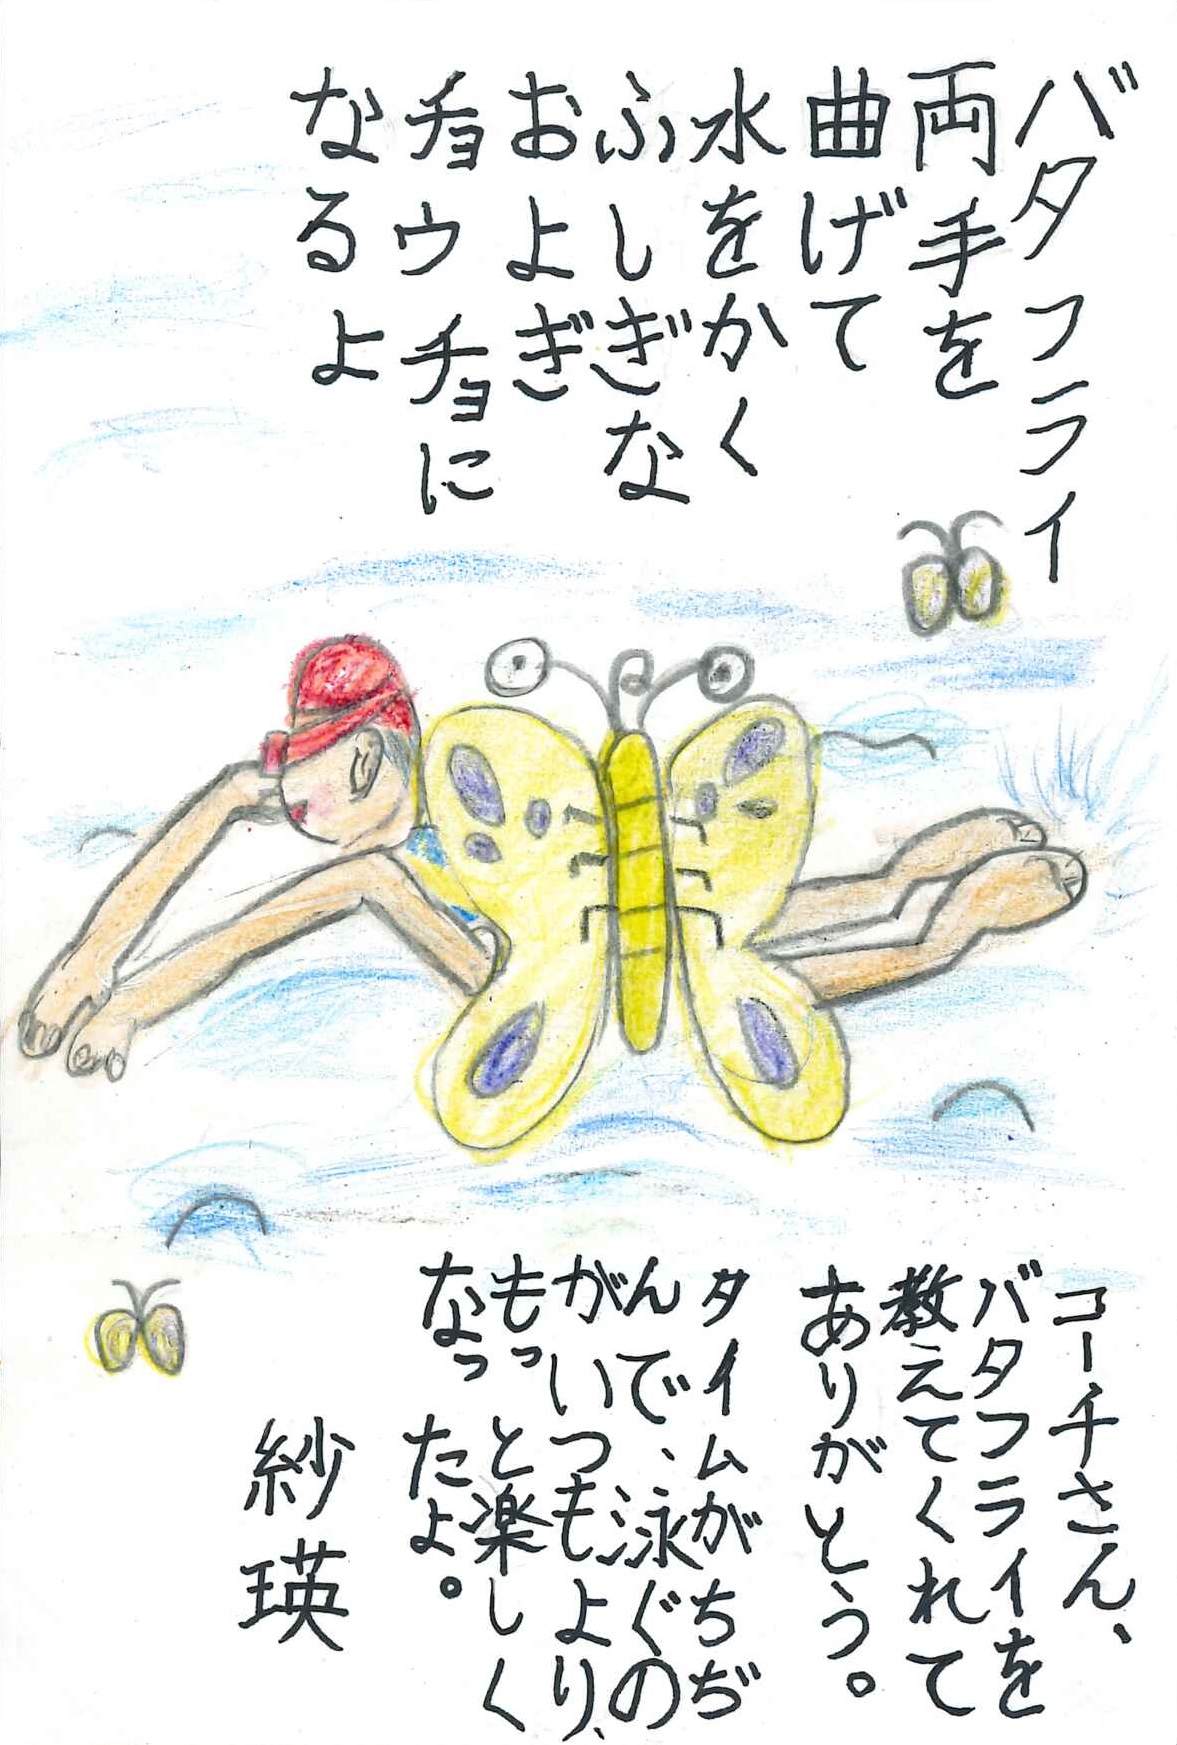 バタフライ
両手を
曲げて
水をかく
ふしぎな
およぎ
チョウチョに
なるよ
コーチさん、
バタフライを
教えてくれて
ありがとう。
タイムがちぢ
んで、泳ぐの
がいつもより、
もっと楽しく
なったよ。
紗瑛